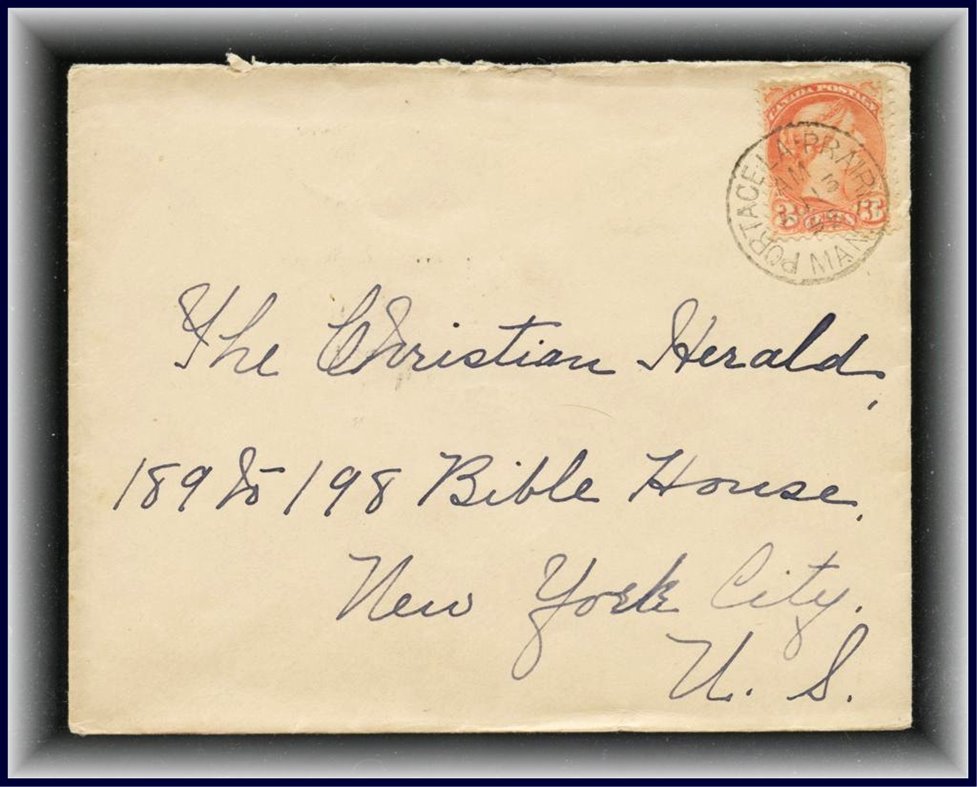 CANADA POSTAGE
3 CENTS 3
PORTAGE-LA-PRAIRIE
AM
MAN
The Christian Herald,
189 to 198 Bible House,
New York City.
U. S.